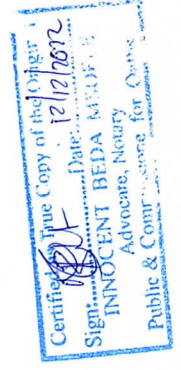 Certified True Copy of the Original
Sign: Date: 12/12/2012
INNOCENT BEDA
Advocate, Notary
Public & for